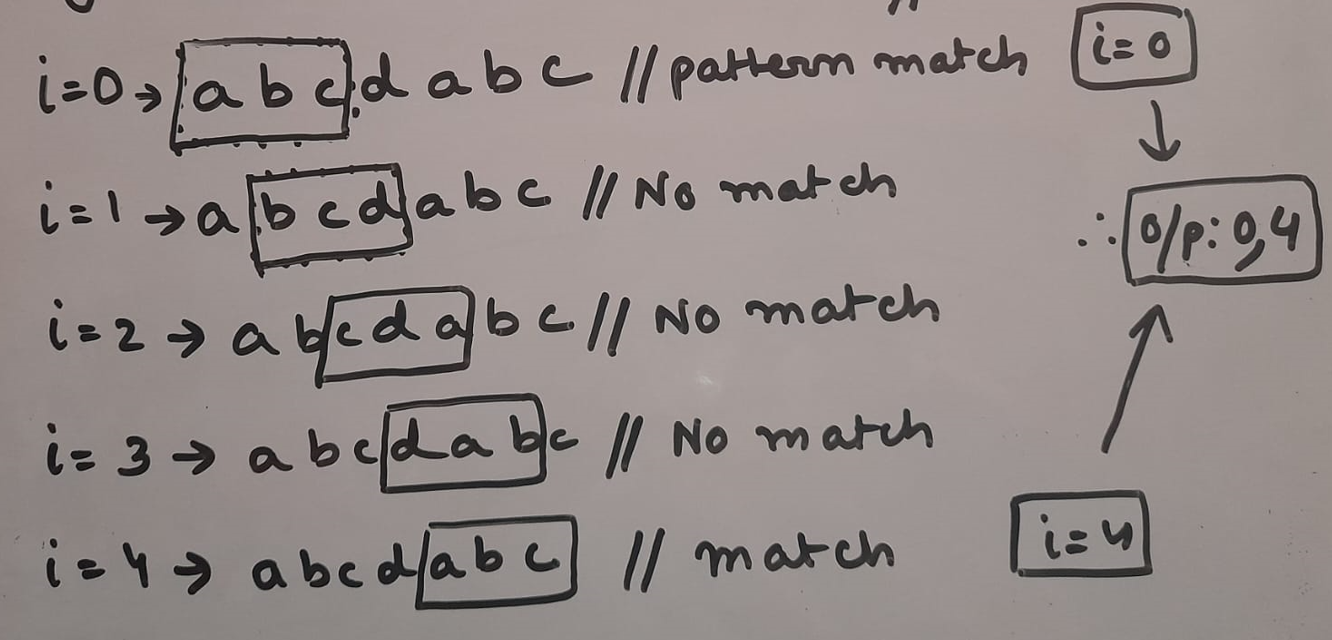 i=0 → abcdabc // pattern match
i=0
i=1 → abcdabc // No match
∴ o/p: 0,4
i=2 → abcdabc // No match
i=3 → abcdabc // No match
i=4 → abcdabc // match
i=4